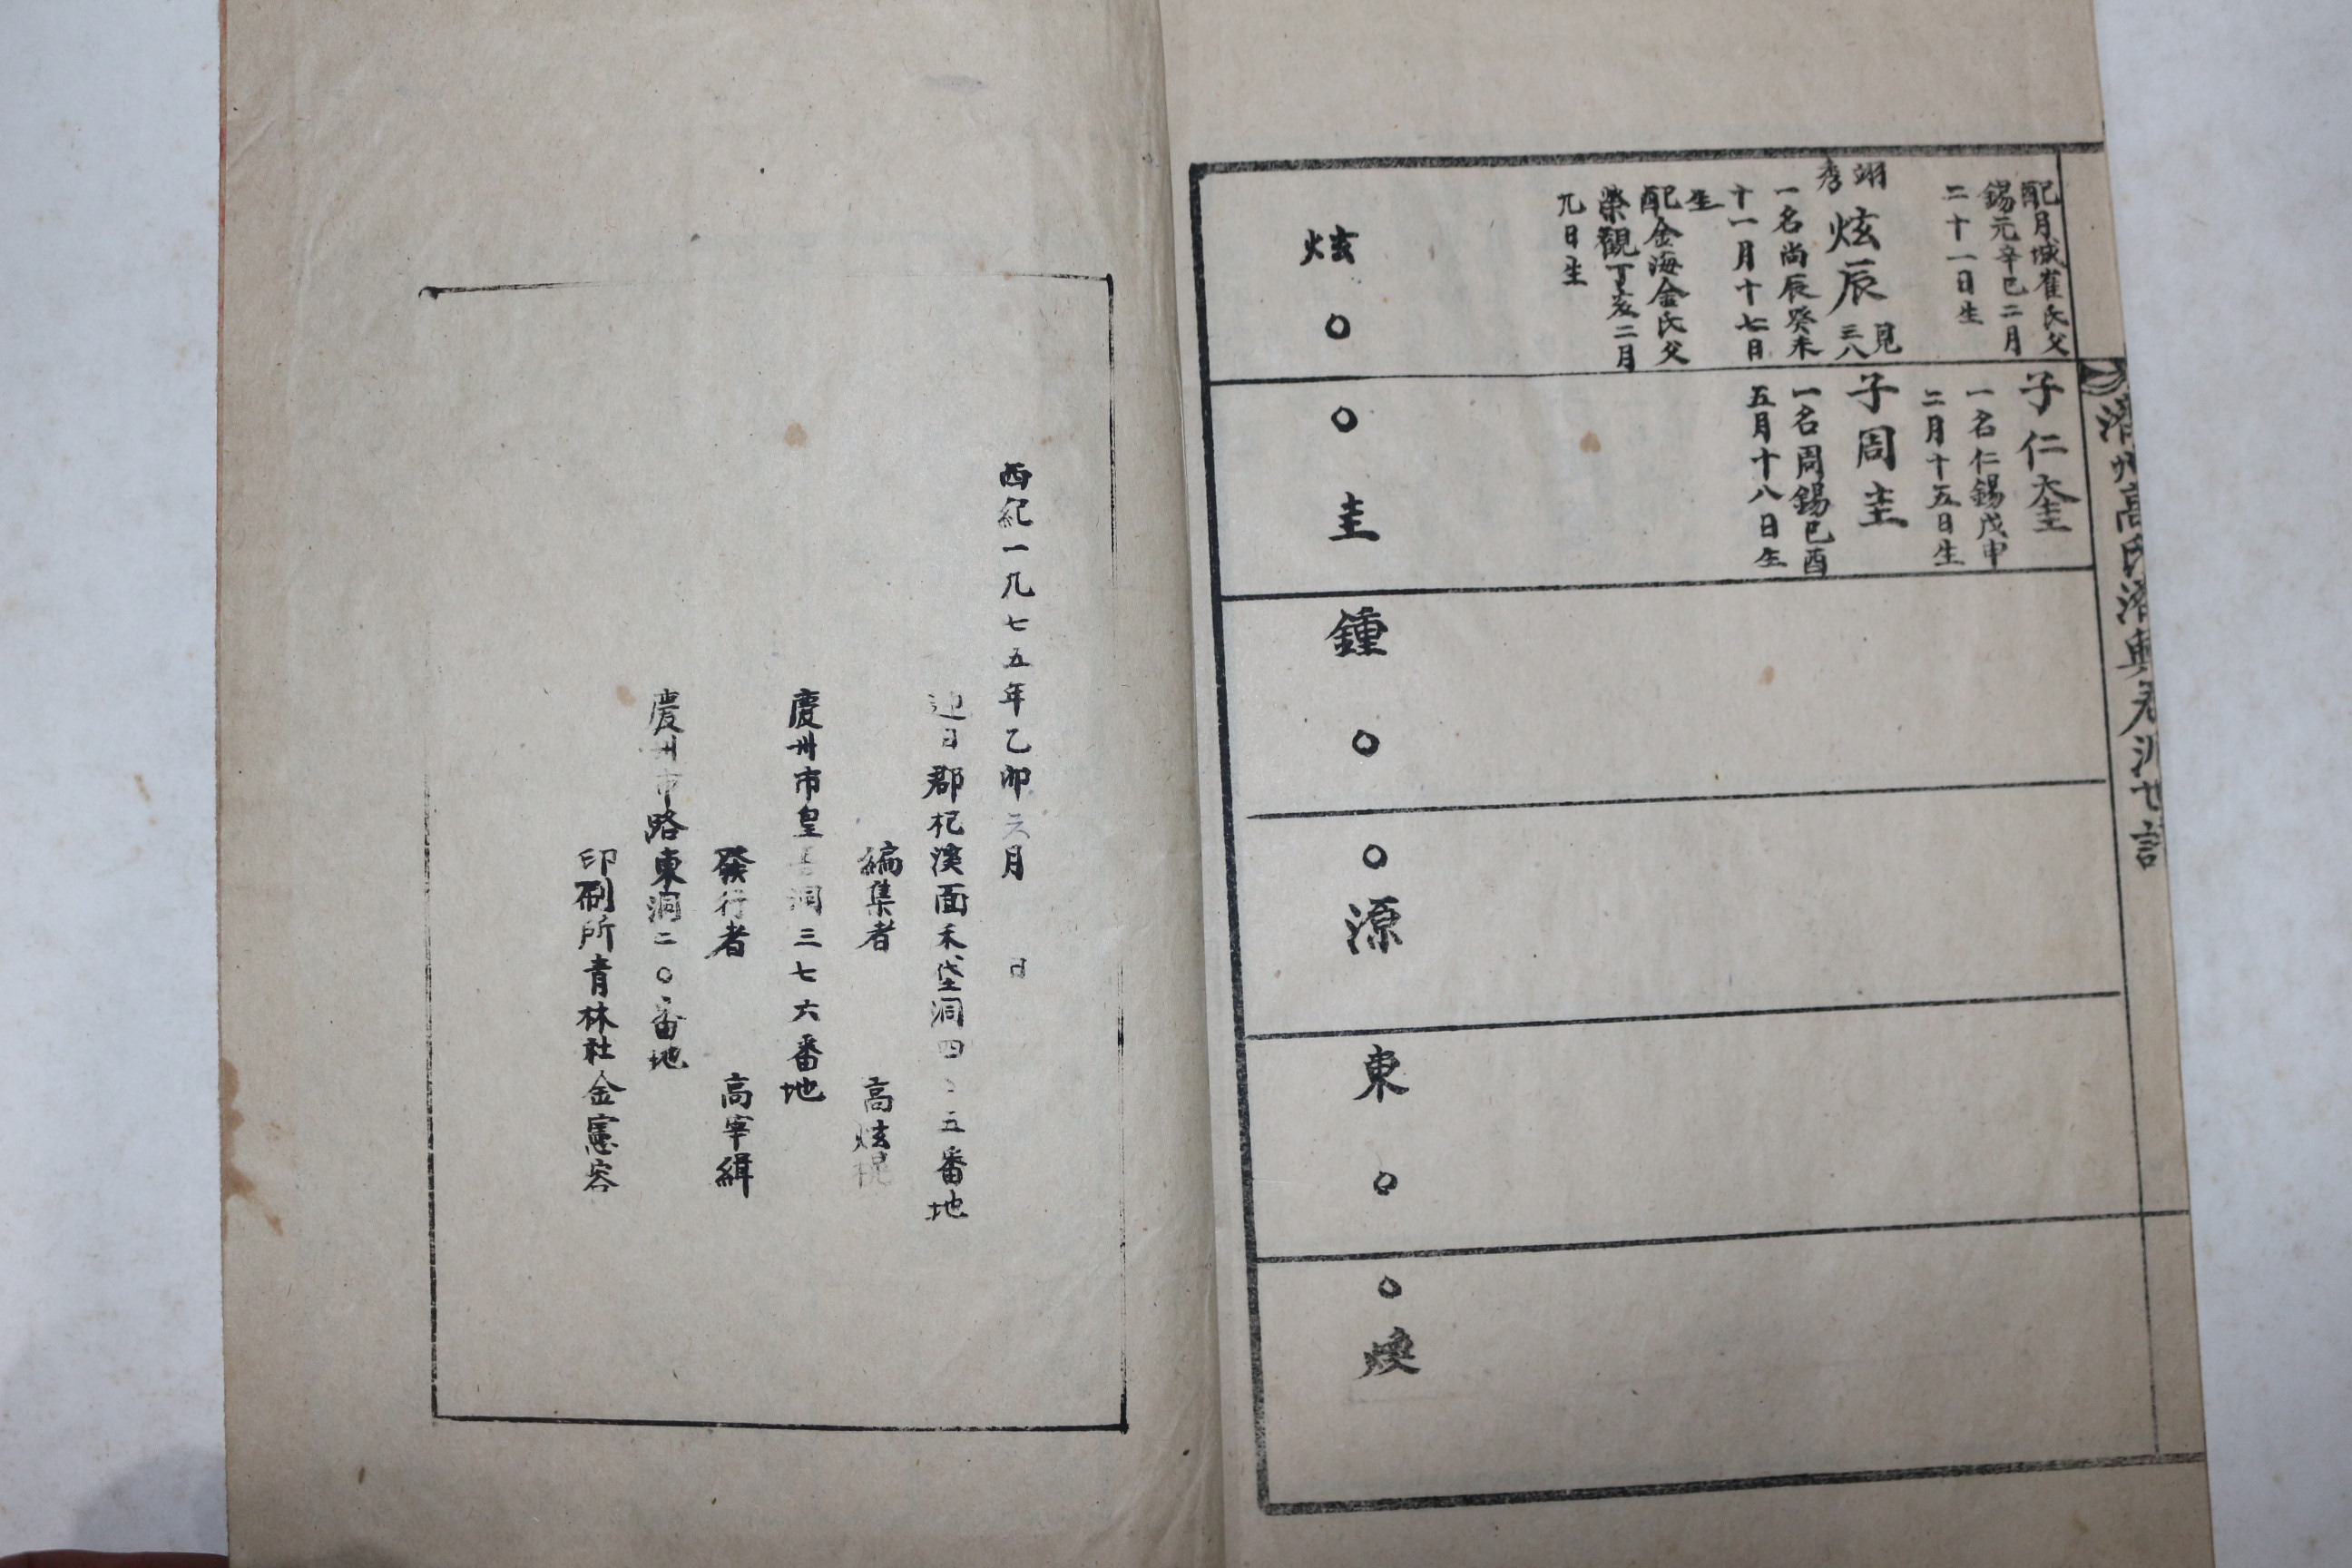 濟州高氏濟興君派世譜
配月城崔氏父
錫元辛巳二月
二十一日生
子仁奎
一名仁錫戊申
二月十五日生
翊
秀
炫辰
見
三八
一名尚辰癸未
十一月十七日
生
配金海金氏父
榮觀丁亥二月
九日生
子周圭
一名周錫己酉
五月十八日生
炫○
○圭
鍾○
○源
東○
○煥
西紀一九七五年乙卯六月 日
迎日郡杞溪面禾垈洞四 五番地
編集者 高炫
慶州市皇 洞三七六番地
發行者 高宰緝
慶州市路東洞二○番地
印刷所青林社金憲容